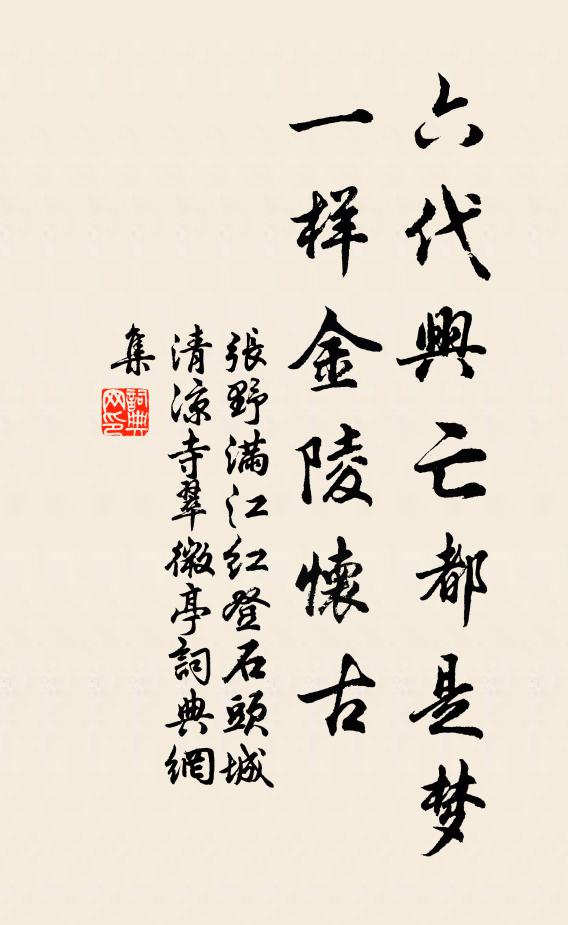 六代興亡都是梦
一样金陵懷古
張野满江红登石頭城
清凉寺翠微亭詞典網
集
詞典
网印